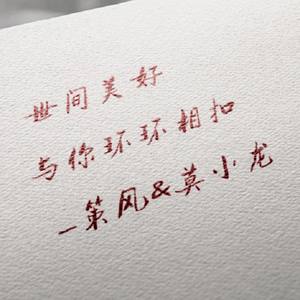 世间美好
与你环环相扣
—策风&莫小龙